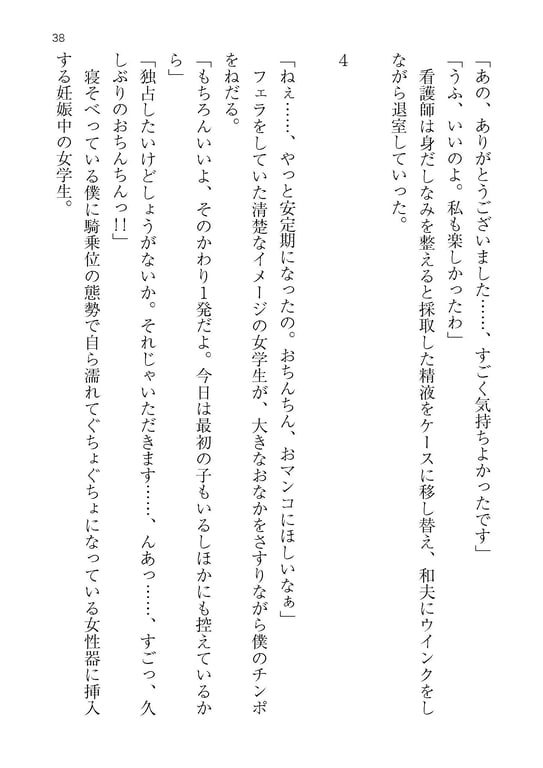 38
「あの、ありがとうございました……、すごく気持ちよかったです」
「うふ、いいのよ。私も楽しかったわ」
看護師は身だしなみを整えると採取した精液をケースに移し替え、和夫にウインクをし
ながら退室していった。
4
「ねぇ……、やっと安定期になったの。おちんちん、おマンコにほしいなぁ」
フェラをしていた清楚なイメージの女学生が、大きなおなかをさすりながら僕のチンポ
をねだる。
「もちろんいいよ、そのかわり1発だよ。今日は最初の子もいるしほかにも控えているか
ら」
「独占したいけどしょうがないか。それじゃいただきます……、んあっ……、すごっ、久
しぶりのおちんちんっ!!」
寝そべっている僕に騎乗位の態勢で自ら濡れてぐちょぐちょになっている女性器に挿入
する妊娠中の女学生。